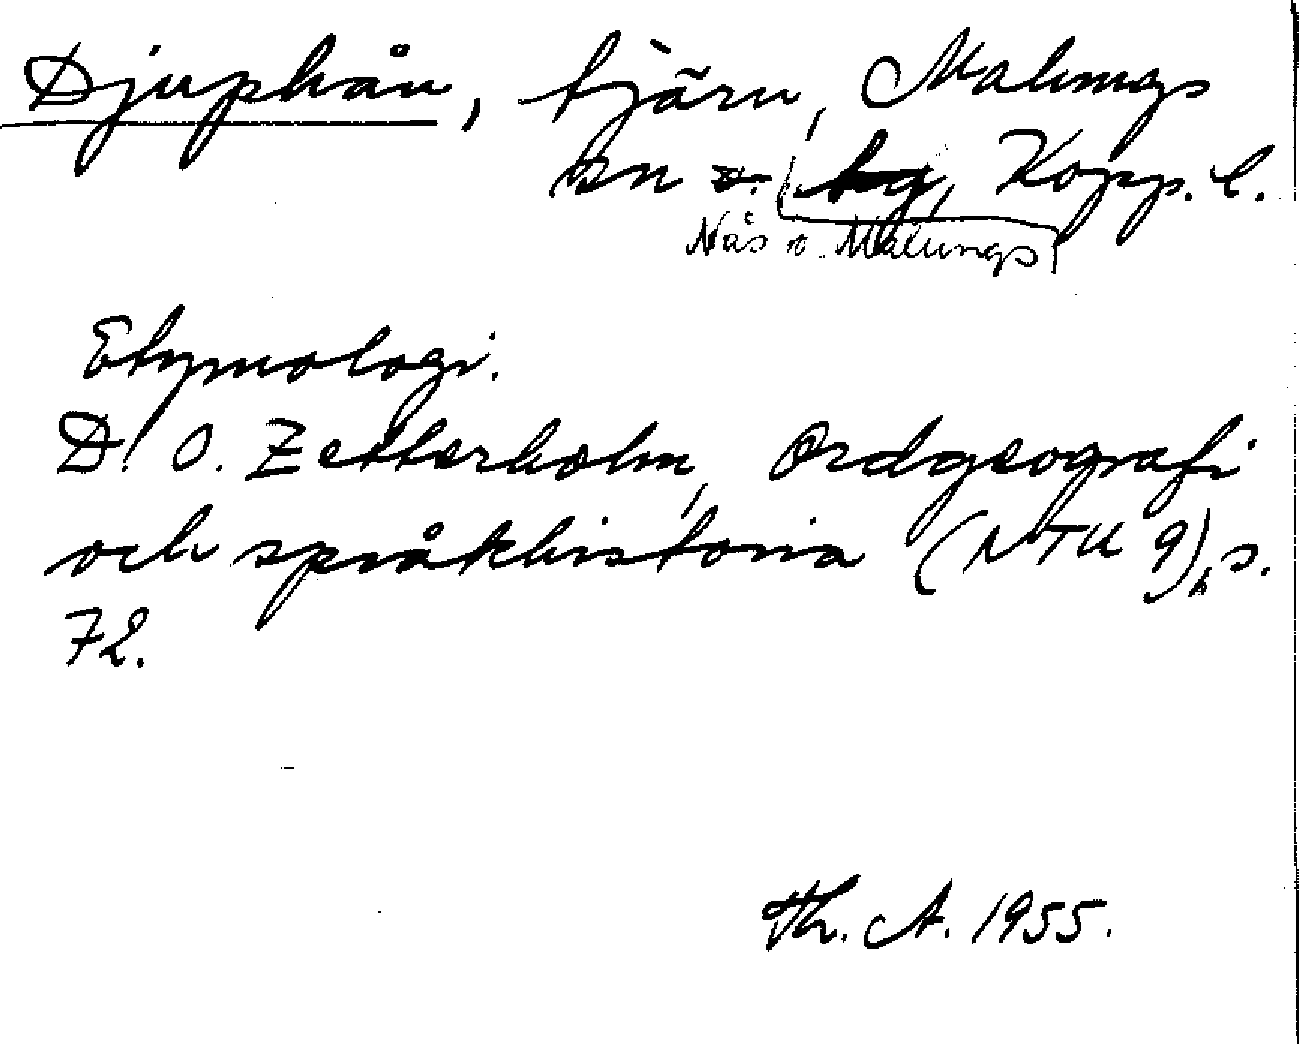 Djuphån, tjärn, Malungs
sn o. tg, Kopp. l.
Nås o. Malungs
Etymologi.
D. O. Zetterholm, Ordgeografi
och språkhistoria (NTU 9), s.
72.
Th. A. 1955.